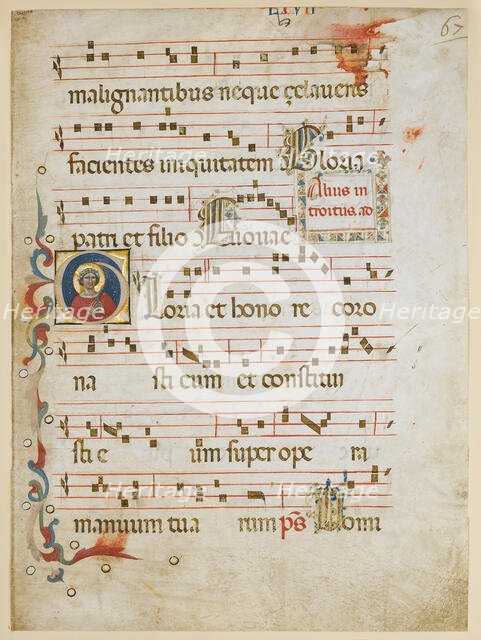 LXVII
67
malignantibus neque çelaveris
facientes iniquitatem Gloria
Alius in
troitus. ad
patri et filio
Gloria et hono re coro
na sti eum et constitui
sti e um super ope ra
manuum tua rum ps Domi
Heritage
Heritage
Heritage
Heritage
Heritage
Heritage